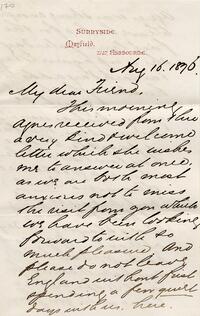 SURRYSIDE.
Mayfield,
Aug 16. 1896.
My dear Friend,
This morning
Agnes received from
a very kind & welcome
letter which she wishes
me to answer at once,
as we are both most
anxious not to miss
the visit from you which
we have been looking
forward to with so
much pleasure, and
please do not leave
England without first
spending a few quiet
days with us here.